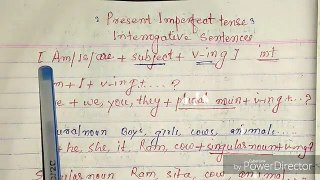 Present Imperfect tense
Interrogative Sentences
[ Am/is/are + subject + v-ing ] int
m + I + v-ing + .....?
e + we, you, they + plural noun + v-ing + ...?
ural noun Boys, girls, cows, animals....
+ he, she, it, Ram, cow + singular noun + ving?
Singular noun Ram, sita, cow, animal
Made with KineMaster
by PowerDirector